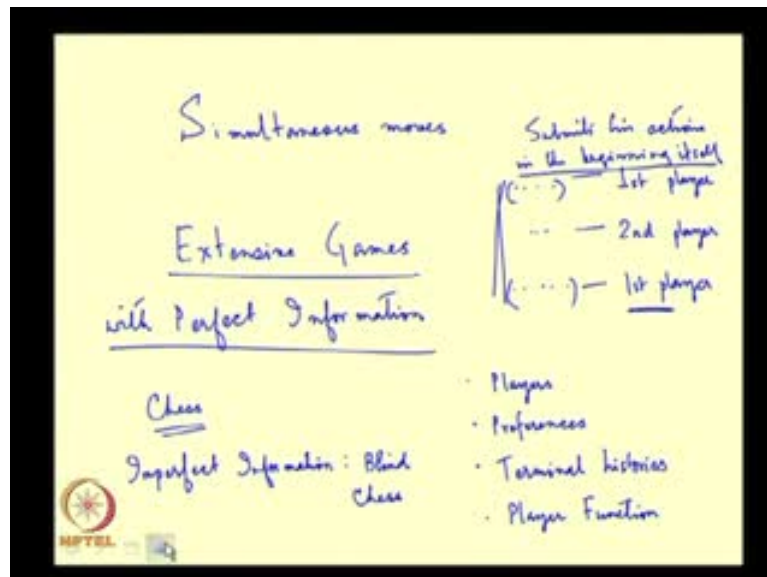 Simultaneous moves
Extensive Games
with Perfect Information
Chess
Imperfect Information : Blind
Chess
Submits his actions
in the beginning itself
(....) — 1st player
.. — 2nd player
(....) — 1st player
· Players
· Preferences
· Terminal histories
· Player Function
NPTEL